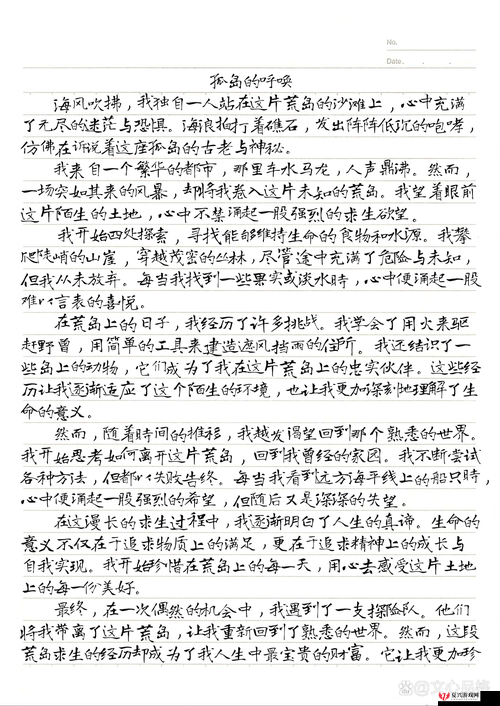 No.
Date.
孤岛的呼唤
海风吹拂，我独自一人站在这片荒岛的沙滩上，心中充满
了无尽的迷茫与恐惧。海浪拍打着礁石，发出阵阵低沉的咆哮，
仿佛在诉说着这座孤岛的古老与神秘。
我来自一个繁华的都市，那里车水马龙，人声鼎沸。然而，
一场突如其来的风暴，却将我卷入这片未知的荒岛。我望着眼前
这片陌生的土地，心中不禁涌起一股强烈的求生欲望。
我开始四处探索，寻找能够维持生命的食物和水源。我攀
爬陡峭的山崖，穿越茂密的丛林，尽管途中充满了危险与未知，
但我从未放弃。每当我找到一些果实或淡水时，心中便涌起一股
难以言表的喜悦。
在荒岛上的日子，我经历了许多挑战。我学会了用火来驱
赶野兽，用简单的工具来建造遮风挡雨的住所。我还结识了一
些岛上的动物，它们成为了我在这片荒岛上的忠实伙伴。这些经
历让我逐渐适应了这个陌生的环境，也让我更加深刻地理解了生
命的意义。
然而，随着时间的推移，我越发渴望回到那个熟悉的世界。
我开始思考如何离开这片荒岛，回到我曾经的家园。我不断尝试
各种方法，但都以失败告终。每当我看到远方海平线上的船只时，
心中便涌起一股强烈的希望，但随后又是深深的失望。
在这漫长的求生过程中，我逐渐明白了人生的真谛。生命的
意义不仅在于追求物质上的满足，更在于追求精神上的成长与
自我实现。我开始珍惜在荒岛上的每一天，用心去感受这片土地
上的每一份美好。
最终，在一次偶然的机会中，我遇到了一支探险队。他们
将我带离了这片荒岛，让我重新回到了熟悉的世界。然而，这段
荒岛求生的经历却成为了我人生中最宝贵的财富。它让我更加珍